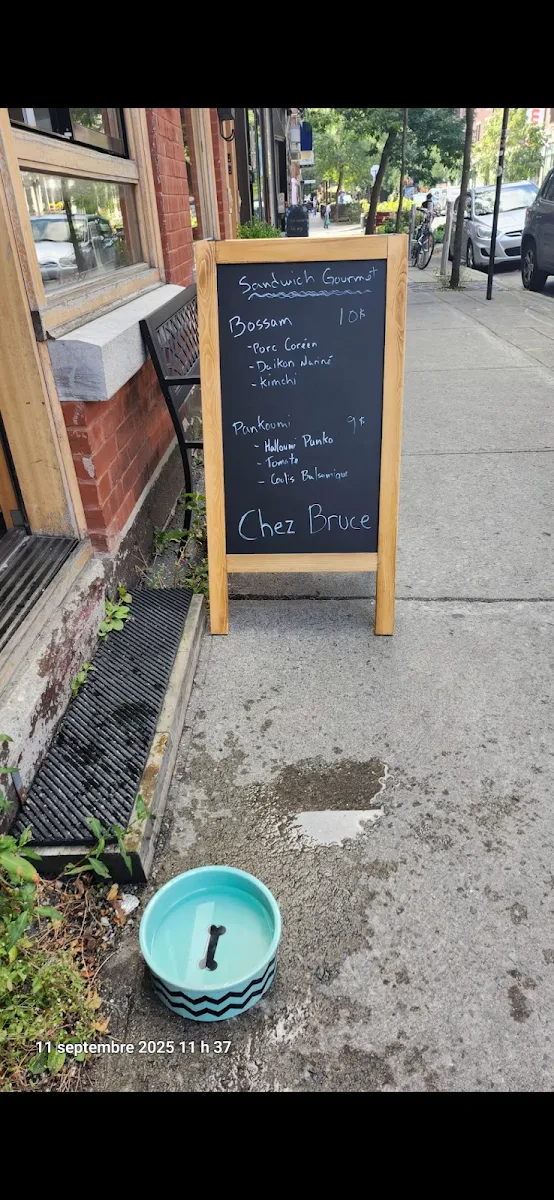 Sandwich Gourmet
Bossam 10$
- Porc Coréen
- Daikon Mariné
- Kimchi
Pankoumi 9$
- Halloumi Panko
- Tomate
- Coulis Balsamique
Chez Bruce
11 septembre 2025 11 h 37